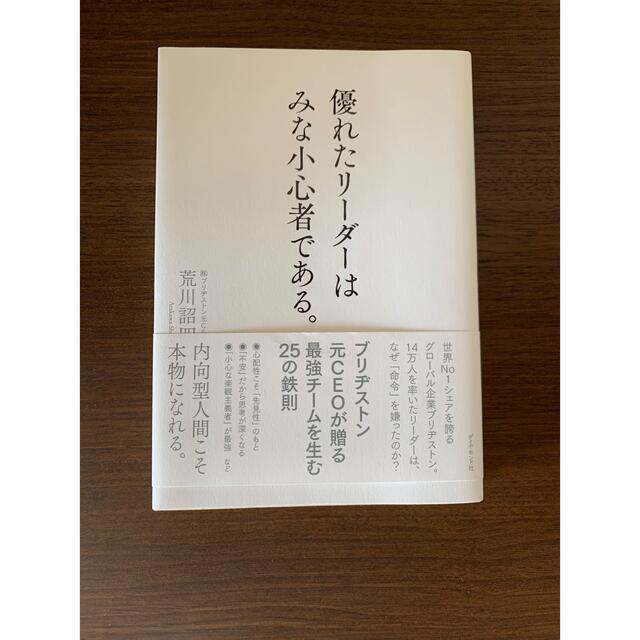 優れたリーダーは
みな小心者である。
㈱ブリヂストン元C
荒川詔四
Arakawa Sh
世界No1シェアを誇る
グローバル企業ブリヂストン。
14万人を率いたリーダーは、
なぜ「命令」を嫌ったのか？
ブリヂストン
元CEOが贈る
最強チームを生む
25の鉄則
●心配性こそ「先見性」のもと
●「不安」だから思考が深くなる
●「小心な楽観主義者」が最強 など
内向型人間こそ
本物になれる。
ダイヤモンド社